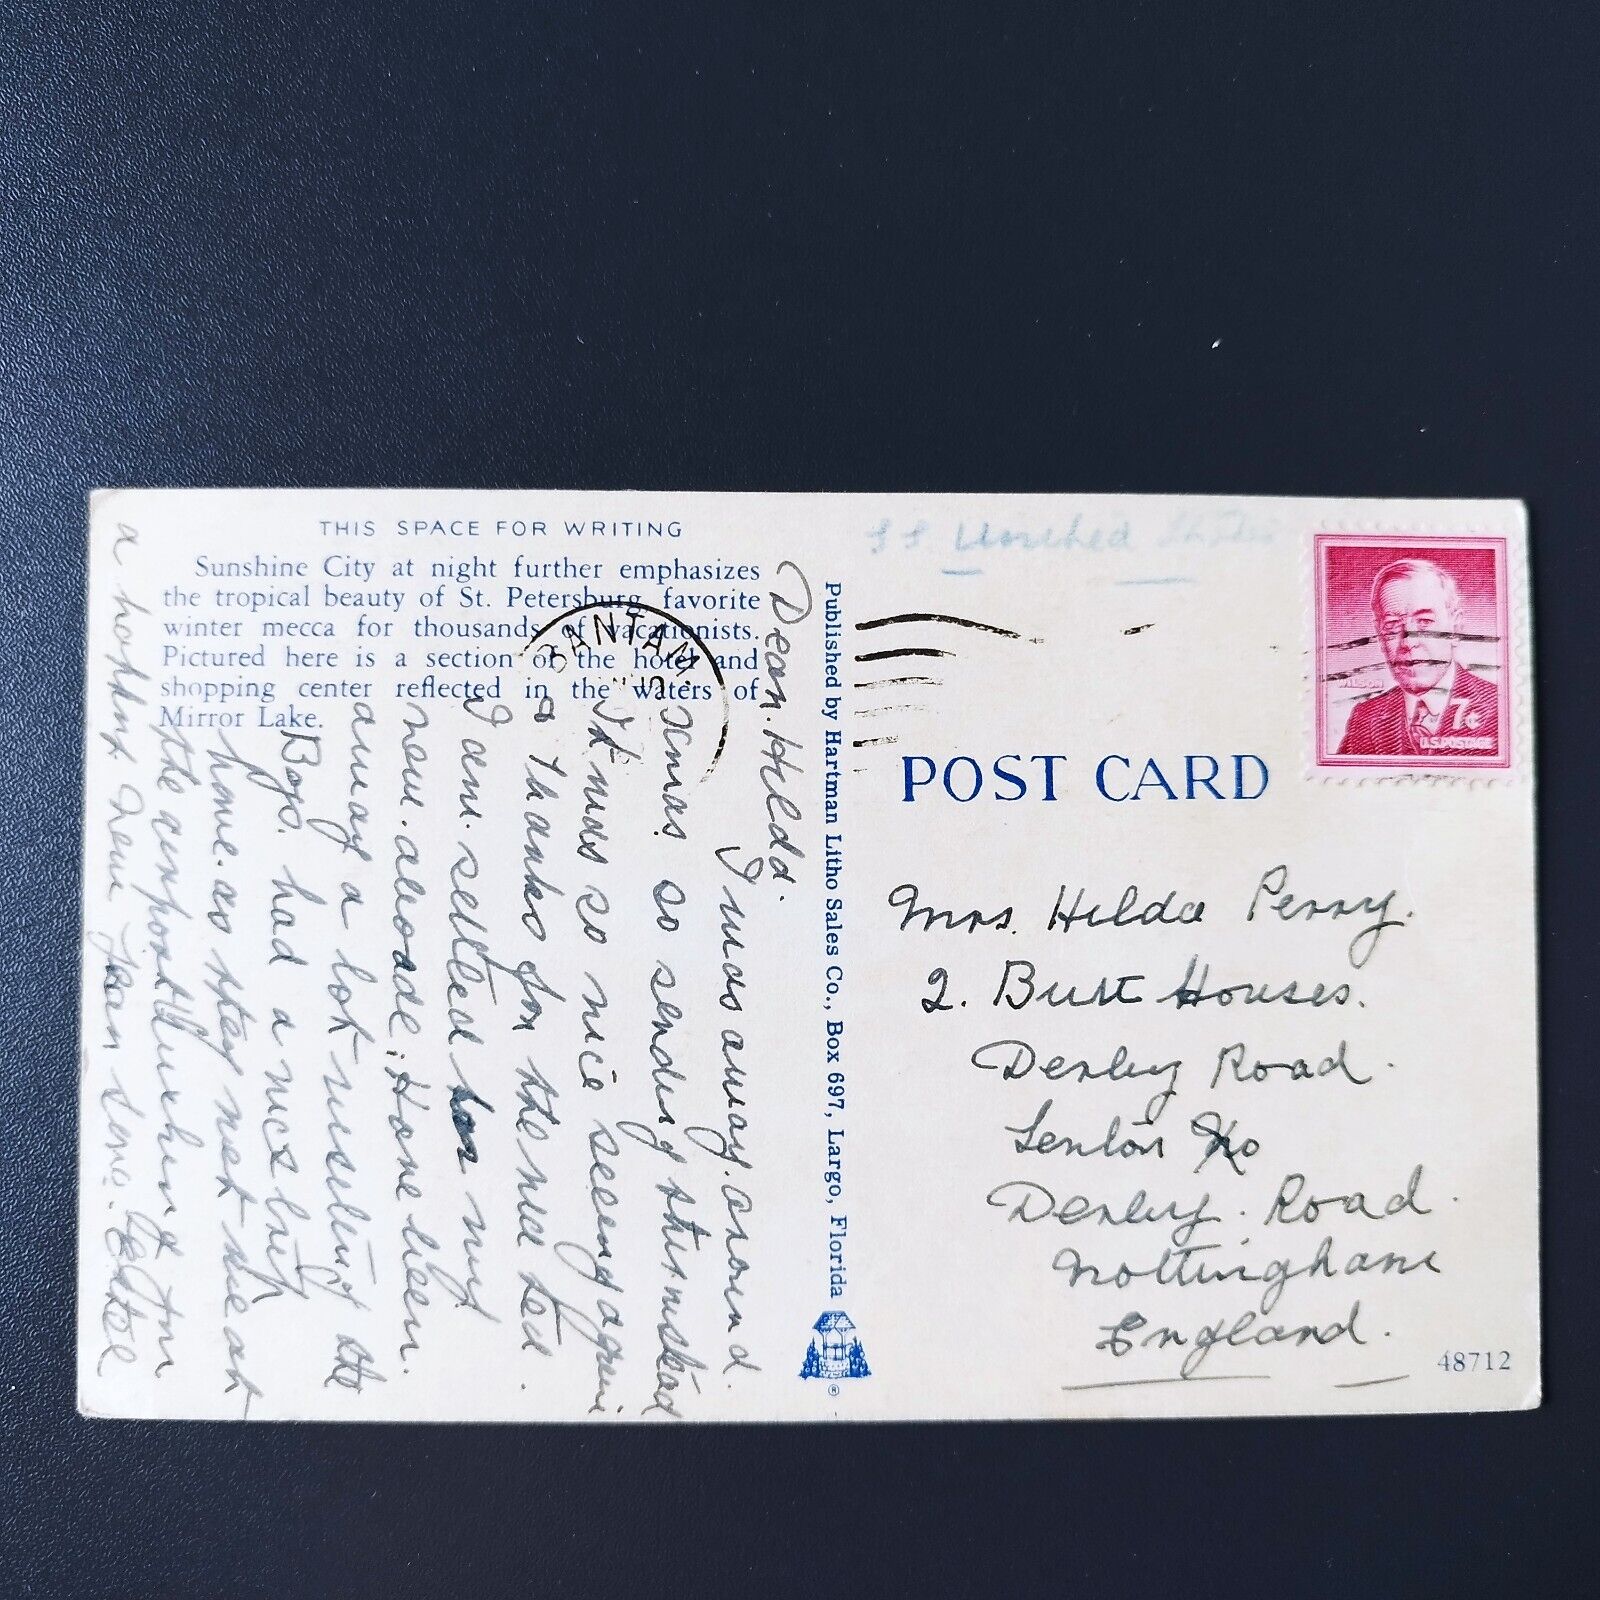 THIS SPACE FOR WRITING
Sunshine City at night further emphasizes
the tropical beauty of St. Petersburg, favorite
winter mecca for thousands of vacationists.
Pictured here is a section of the hotel and
shopping center reflected in the waters of
Mirror Lake.
Dear. Hilda.
I was away. around.
Xmas. so sending this. instead
It was so nice seeing again
& Thanks for the nice tea.
I am. settled in my
new. abode; Have been.
away a lot visiting the
Boys. had a nice trip
home. as they met me at
the airport Wishing you
a happy New Year
Published by Hartman Litho Sales Co., Box 697, Largo, Florida
®
BANTAM
United States
WILSON
7¢
U.S. POSTAGE
POST CARD
Mrs. Hilda Perry.
2. Butt Houses.
Derby Road.
Lenton
Derby. Road.
Nottingham
England.
48712